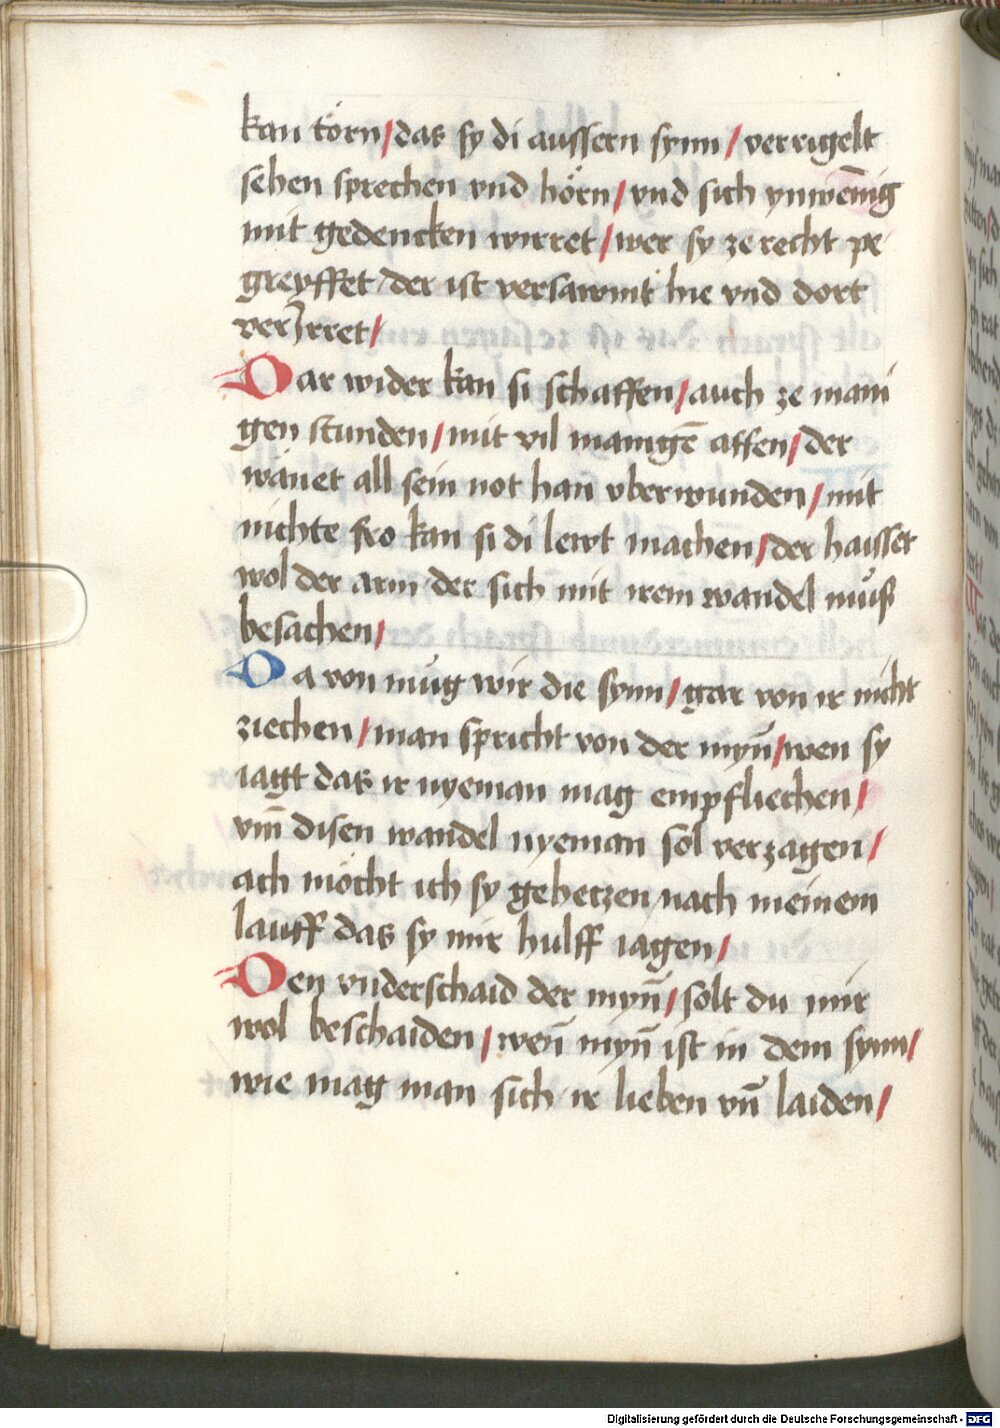 kan törn / das sy di aussern synn / verrigelt
sehen sprechen vnd hörn / vnd sich ynwēnig
mit gedencken wirret / wer sy ze recht pe
greyffet / der ist versawmt hie vnd dort
verirret /
Dar wider kan si schaffen / auch ze mani
gen stunden / mit vil manigē affen / der
wänet all sein not han vberwunden / mit
nichte fro kan si di lewt machen / der haisset
wol der arm der sich mit irem wandel můß
besachen /
Da von můg wir die synn / gar von ir nicht
ziechen / man spricht von der myn̄ / wen sy
iagt das ir nyeman mag empfliechen /
vm̄ disen wandel nyeman sol verzagen /
ach möcht ich sy gehetzen nach meinem
lauff das sy mir hulff iagen /
Den vnderschaid der myn̄ / solt du mir
wol beschaiden / wen̄ myn̄ ist in dem synn /
wie mag man sich ir lieben vn̄ laiden /
Digitalisierung gefördert durch die Deutsche Forschungsgemeinschaft - DFG